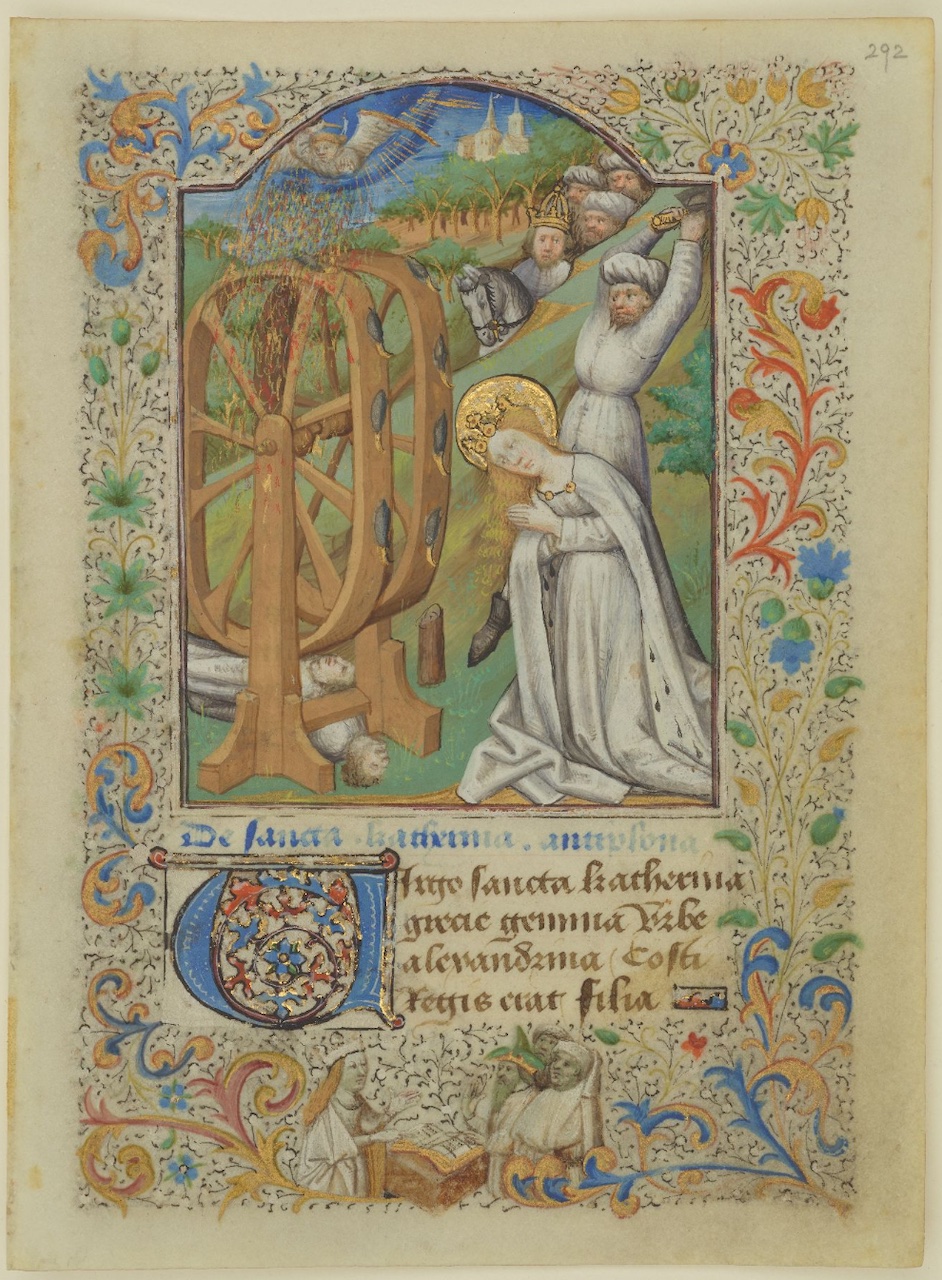 292
De sancta katherina. antiphona
Virgo sancta katherina
grecie gemma Vrbe
alexandrina Costi
Regis erat filia